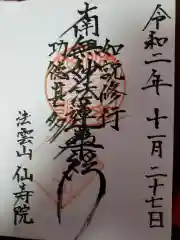 令和二年十一月二十七日
如説修行
南無妙法蓮華経
功徳甚多
法雲山 仙寿院